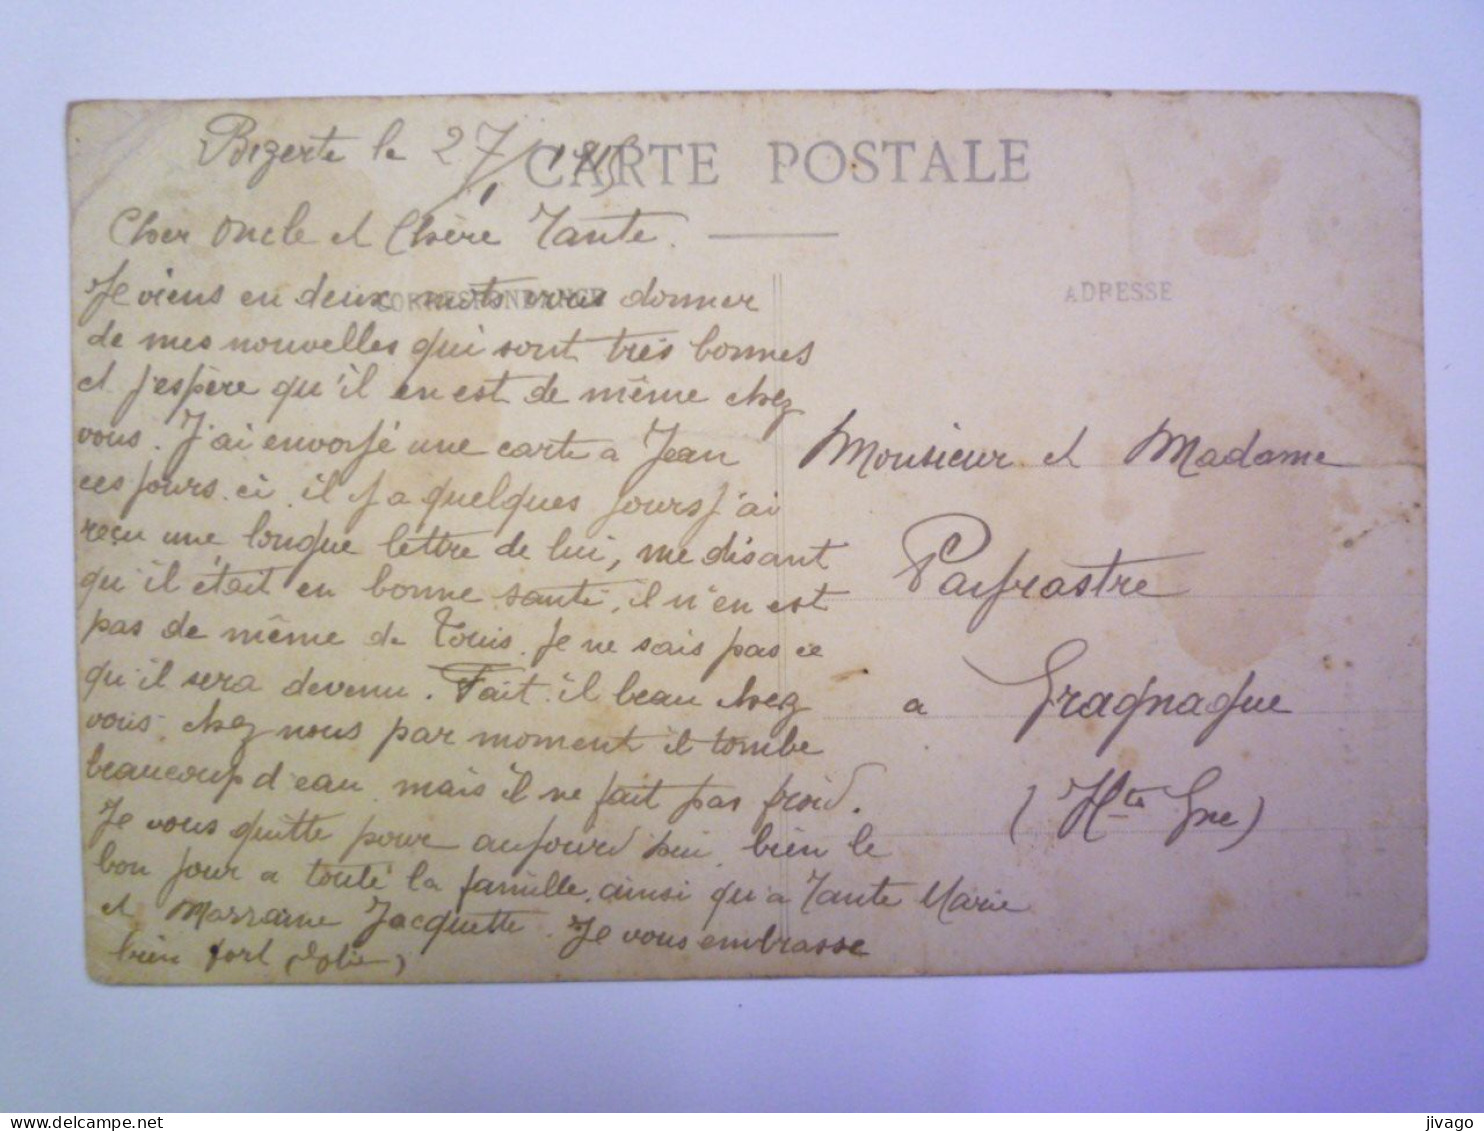 Bizerte le 27/1 1915
CARTE POSTALE
Cher Oncle et Chère Tante.
CORRESPONDANCE
ADRESSE
Je viens en deux mots vous donner
de mes nouvelles qui sont très bonnes
et j'espère qu'il en est de même chez
vous. J'ai envoyé une carte a Jean
ces jours ci il y a quelques jours j'ai
reçu une longue lettre de lui, me disant
qu'il était en bonne santé, il n'en est
pas de même de Louis. Je ne sais pas ce
qu'il sera devenu. Fait il beau chez
vous. chez nous par moment il tombe
beaucoup d'eau mais il ne fait pas froid.
Je vous quitte pour aujourd'hui bien le
bon jour a toute la famille ainsi qu'a Tante Marie
et Marraine Jacquette. Je vous embrasse
bien fort
Monsieur et Madame
Paifrastre
a Gragnague
(Hte Gne)
jivago